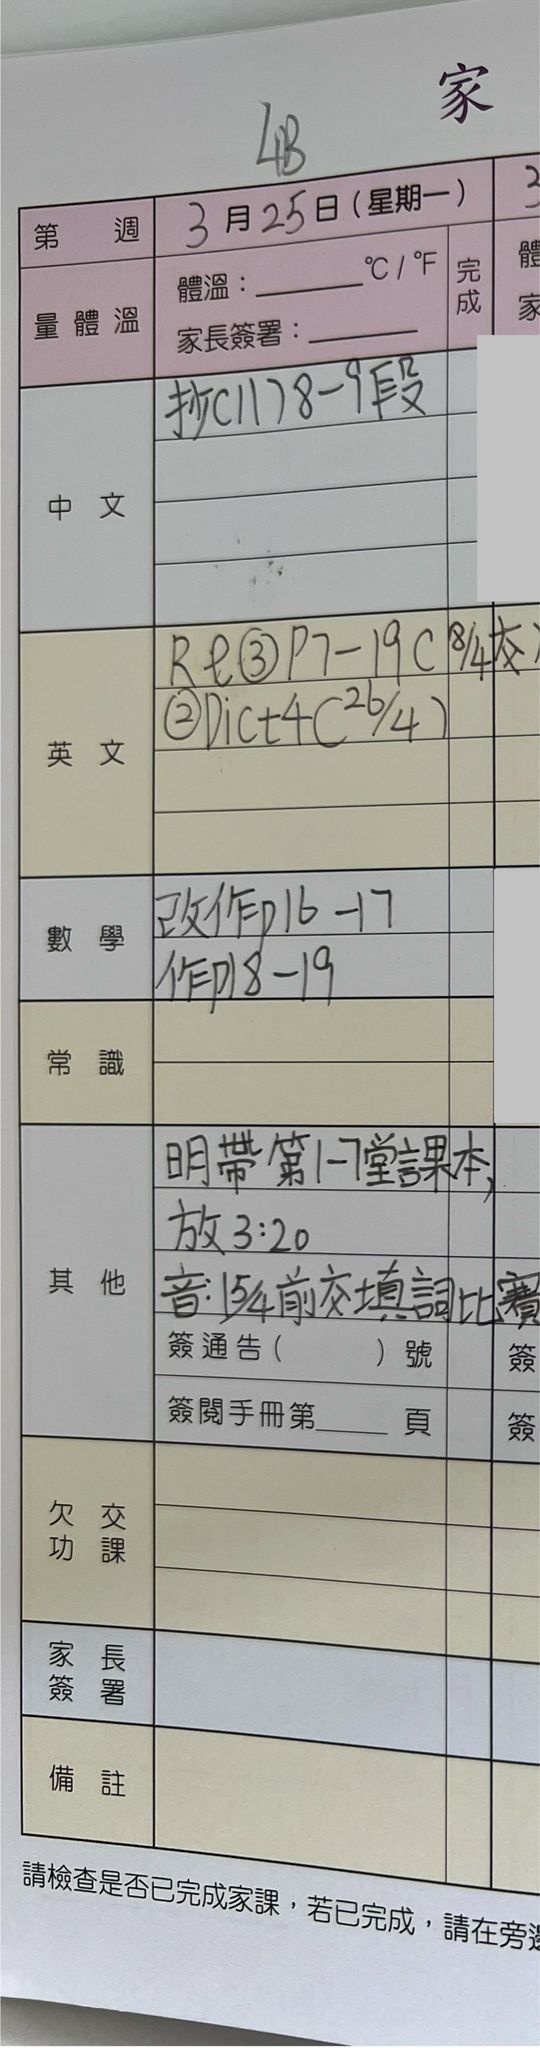 家
4B
第 週 3月25日(星期一) 3
量體溫 體溫：______ °C / °F 完成 體
家長簽署：______ 家
中文 抄C11)8-9段
英文 Re③P7-19C 8/4交)
②Dict4(26/4)
數學 改作p16-17
作p18-19
常識
其他 明帶第1-7堂課本,
放3:20
音:15/4前交填詞比賽
簽通告( )號 簽
簽閱手冊第____頁 簽
欠交功課
家長簽署
備註
請檢查是否已完成家課，若已完成，請在旁邊